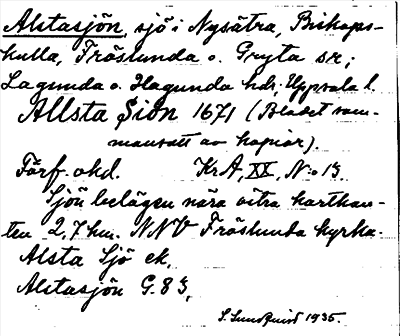 Alstasjön, sjö i Nysätra, Biskops-
kulla, Fröslunda o. Gryta sr;
Lagunda o. Hagunda hdr, Uppsala l.
Allsta Siön 1671 (Bladet sam-
mansatt av kopior).
Förf. okd. KrA, XX, N:o 13.
Sjön belägen nära östra kartkan-
ten 2,7 km. NNV Fröslunda kyrka.
Alsta Sjö ek,
Alstasjön G. 83,
S. Lundquist 1935.